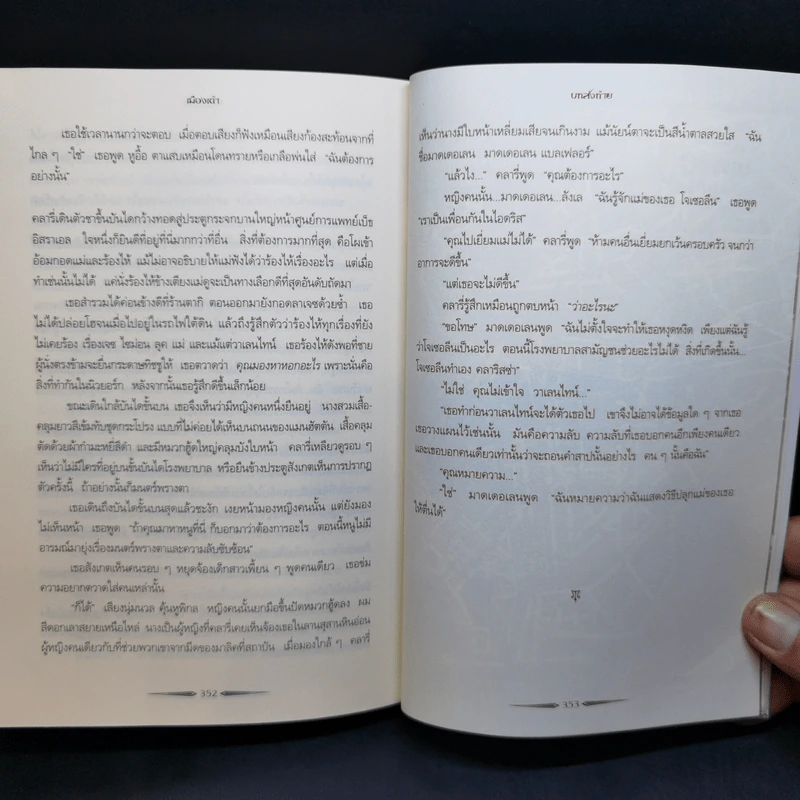 เมืองเถ้า
เธอใช้เวลานานกว่าจะตอบ เมื่อตอบเสียงก็ฟังเหมือนเสียงก้องสะท้อนจากที่
ไกล ๆ “ใช่” เธอพูด หูอื้อ ตาแสบเหมือนโดนทรายหรือเกลือพ่นใส่ “ฉันต้องการ
อย่างนั้น”
คลารี่เดินตัวชาขึ้นบันไดกว้างทอดสู่ประตูกระจกบานใหญ่หน้าศูนย์การแพทย์เบ็ธ
อิสราเอล ใจหนึ่งก็ยินดีที่อยู่ที่นี่มากกว่าที่อื่น สิ่งที่ต้องการมากที่สุด คือโผเข้า
อ้อมกอดแม่และร้องไห้ แม้ไม่อาจอธิบายให้แม่ฟังได้ว่าร้องไห้เรื่องอะไร แต่เมื่อ
ทำเช่นนั้นไม่ได้ แค่นั่งร้องไห้ข้างเตียงแม่ดูจะเป็นทางเลือกดีที่สุดอันดับถัดมา
เธอสำรวมได้ค่อนข้างดีที่ร้านตากิ ตอนออกมายังกอดลาเจซด้วยซ้ำ เธอ
ไม่ได้ปล่อยโฮจนเมื่อไปอยู่ในรถไฟใต้ดิน แล้วถึงรู้สึกตัวว่าร้องไห้ทุกเรื่องที่ยัง
ไม่เคยร้อง เรื่องเจซ ไซม่อน ลุค แม่ และแม้แต่วาเลนไทน์ เธอร้องไห้ดังพอที่ชาย
ผู้นั่งตรงข้ามจะยื่นกระดาษทิชชูให้ เธอตวาดว่า คุณมองหาหอกอะไร เพราะนั่นคือ
สิ่งที่ทำกันในนิวยอร์ก หลังจากนั้นเธอรู้สึกดีขึ้นเล็กน้อย
ขณะเดินใกล้บันไดขั้นบน เธอจึงเห็นว่ามีหญิงคนหนึ่งยืนอยู่ นางสวมเสื้อ-
คลุมยาวสีเข้มทับชุดกระโปรง แบบที่ไม่ค่อยได้เห็นบนถนนของแมนฮัตตัน เสื้อคลุม
ตัดด้วยผ้ากำมะหยี่สีดำ และมีหมวกฮู้ดใหญ่คลุมบังใบหน้า คลารี่เหลียวดูรอบ ๆ
เห็นว่าไม่มีใครที่อยู่บนขั้นบันไดโรงพยาบาล หรือยืนข้างประตูสังเกตเห็นการปรากฏ
ตัวครั้งนี้ ถ้าอย่างนั้นก็มนตร์พรางตา
เธอเดินถึงบันไดขั้นบนสุดแล้วชะงัก เงยหน้ามองหญิงคนนั้น แต่ยังมอง
ไม่เห็นหน้า เธอพูด “ถ้าคุณมาหาหนูที่นี่ ก็บอกมาว่าต้องการอะไร ตอนนี้หนูไม่มี
อารมณ์มายุ่งเรื่องมนตร์พรางตาและความลับซับซ้อน”
เธอสังเกตเห็นคนรอบ ๆ หยุดจ้องเด็กสาวเพี้ยน ๆ พูดคนเดียว เธอข่ม
ความอยากตวาดใส่คนเหล่านั้น
“ก็ได้” เสียงนุ่มนวล คุ้นหูพิกล หญิงคนนั้นยกมือขึ้นปัดหมวกฮู้ดลง ผม
สีดอกเลาสยายเหนือไหล่ นางเป็นผู้หญิงที่คลารี่เคยเห็นจ้องเธอในลานสุสานหินอ่อน
ผู้หญิงคนเดียวกับที่ช่วยพวกเขาจากมีดของมาลิคที่สถาบัน เมื่อมองใกล้ ๆ คลารี่
352
บทส่งท้าย
เห็นว่านางมีใบหน้าเหลี่ยมเสียจนเกินงาม แม้นัยน์ตาจะเป็นสีน้ำตาลสวยใส “ฉัน
ชื่อมาดเดอเลน มาดเดอเลน แบลเฟลอร์”
“แล้วไง...” คลารี่พูด “คุณต้องการอะไร”
หญิงคนนั้น...มาดเดอเลน...ลังเล “ฉันรู้จักแม่ของเธอ โจเซอลีน” เธอพูด
“เราเป็นเพื่อนกันในไอดริส”
“คุณไปเยี่ยมแม่ไม่ได้” คลารี่พูด “ห้ามคนอื่นเยี่ยมยกเว้นครอบครัว จนกว่า
อาการจะดีขึ้น”
“แต่เธอจะไม่ดีขึ้น”
คลารี่รู้สึกเหมือนถูกตบหน้า “ว่าอะไรนะ”
“ขอโทษ” มาดเดอเลนพูด “ฉันไม่ตั้งใจจะทำให้เธอหงุดหงิด เพียงแต่ฉันรู้
ว่าโจเซอลีนเป็นอะไร ตอนนี้โรงพยาบาลสามัญชนช่วยอะไรไม่ได้ สิ่งที่เกิดขึ้นนั้น...
โจเซอลีนทำเอง คลาริสซ่า”
“ไม่ใช่ คุณไม่เข้าใจ วาเลนไทน์...”
“เธอทำก่อนวาเลนไทน์จะได้ตัวเธอไป เขาจึงไม่อาจได้ข้อมูลใด ๆ จากเธอ
เธอวางแผนไว้เช่นนั้น มันคือความลับ ความลับที่เธอบอกคนอีกเพียงคนเดียว
และเธอบอกคนเดียวเท่านั้นว่าจะถอนคำสาปนั้นอย่างไร คน ๆ นั้นคือฉัน”
“คุณหมายความ...”
“ใช่” มาดเดอเลนพูด “ฉันหมายความว่าฉันแสดงวิธีปลุกแม่ของเธอ
ให้ตื่นได้”
353